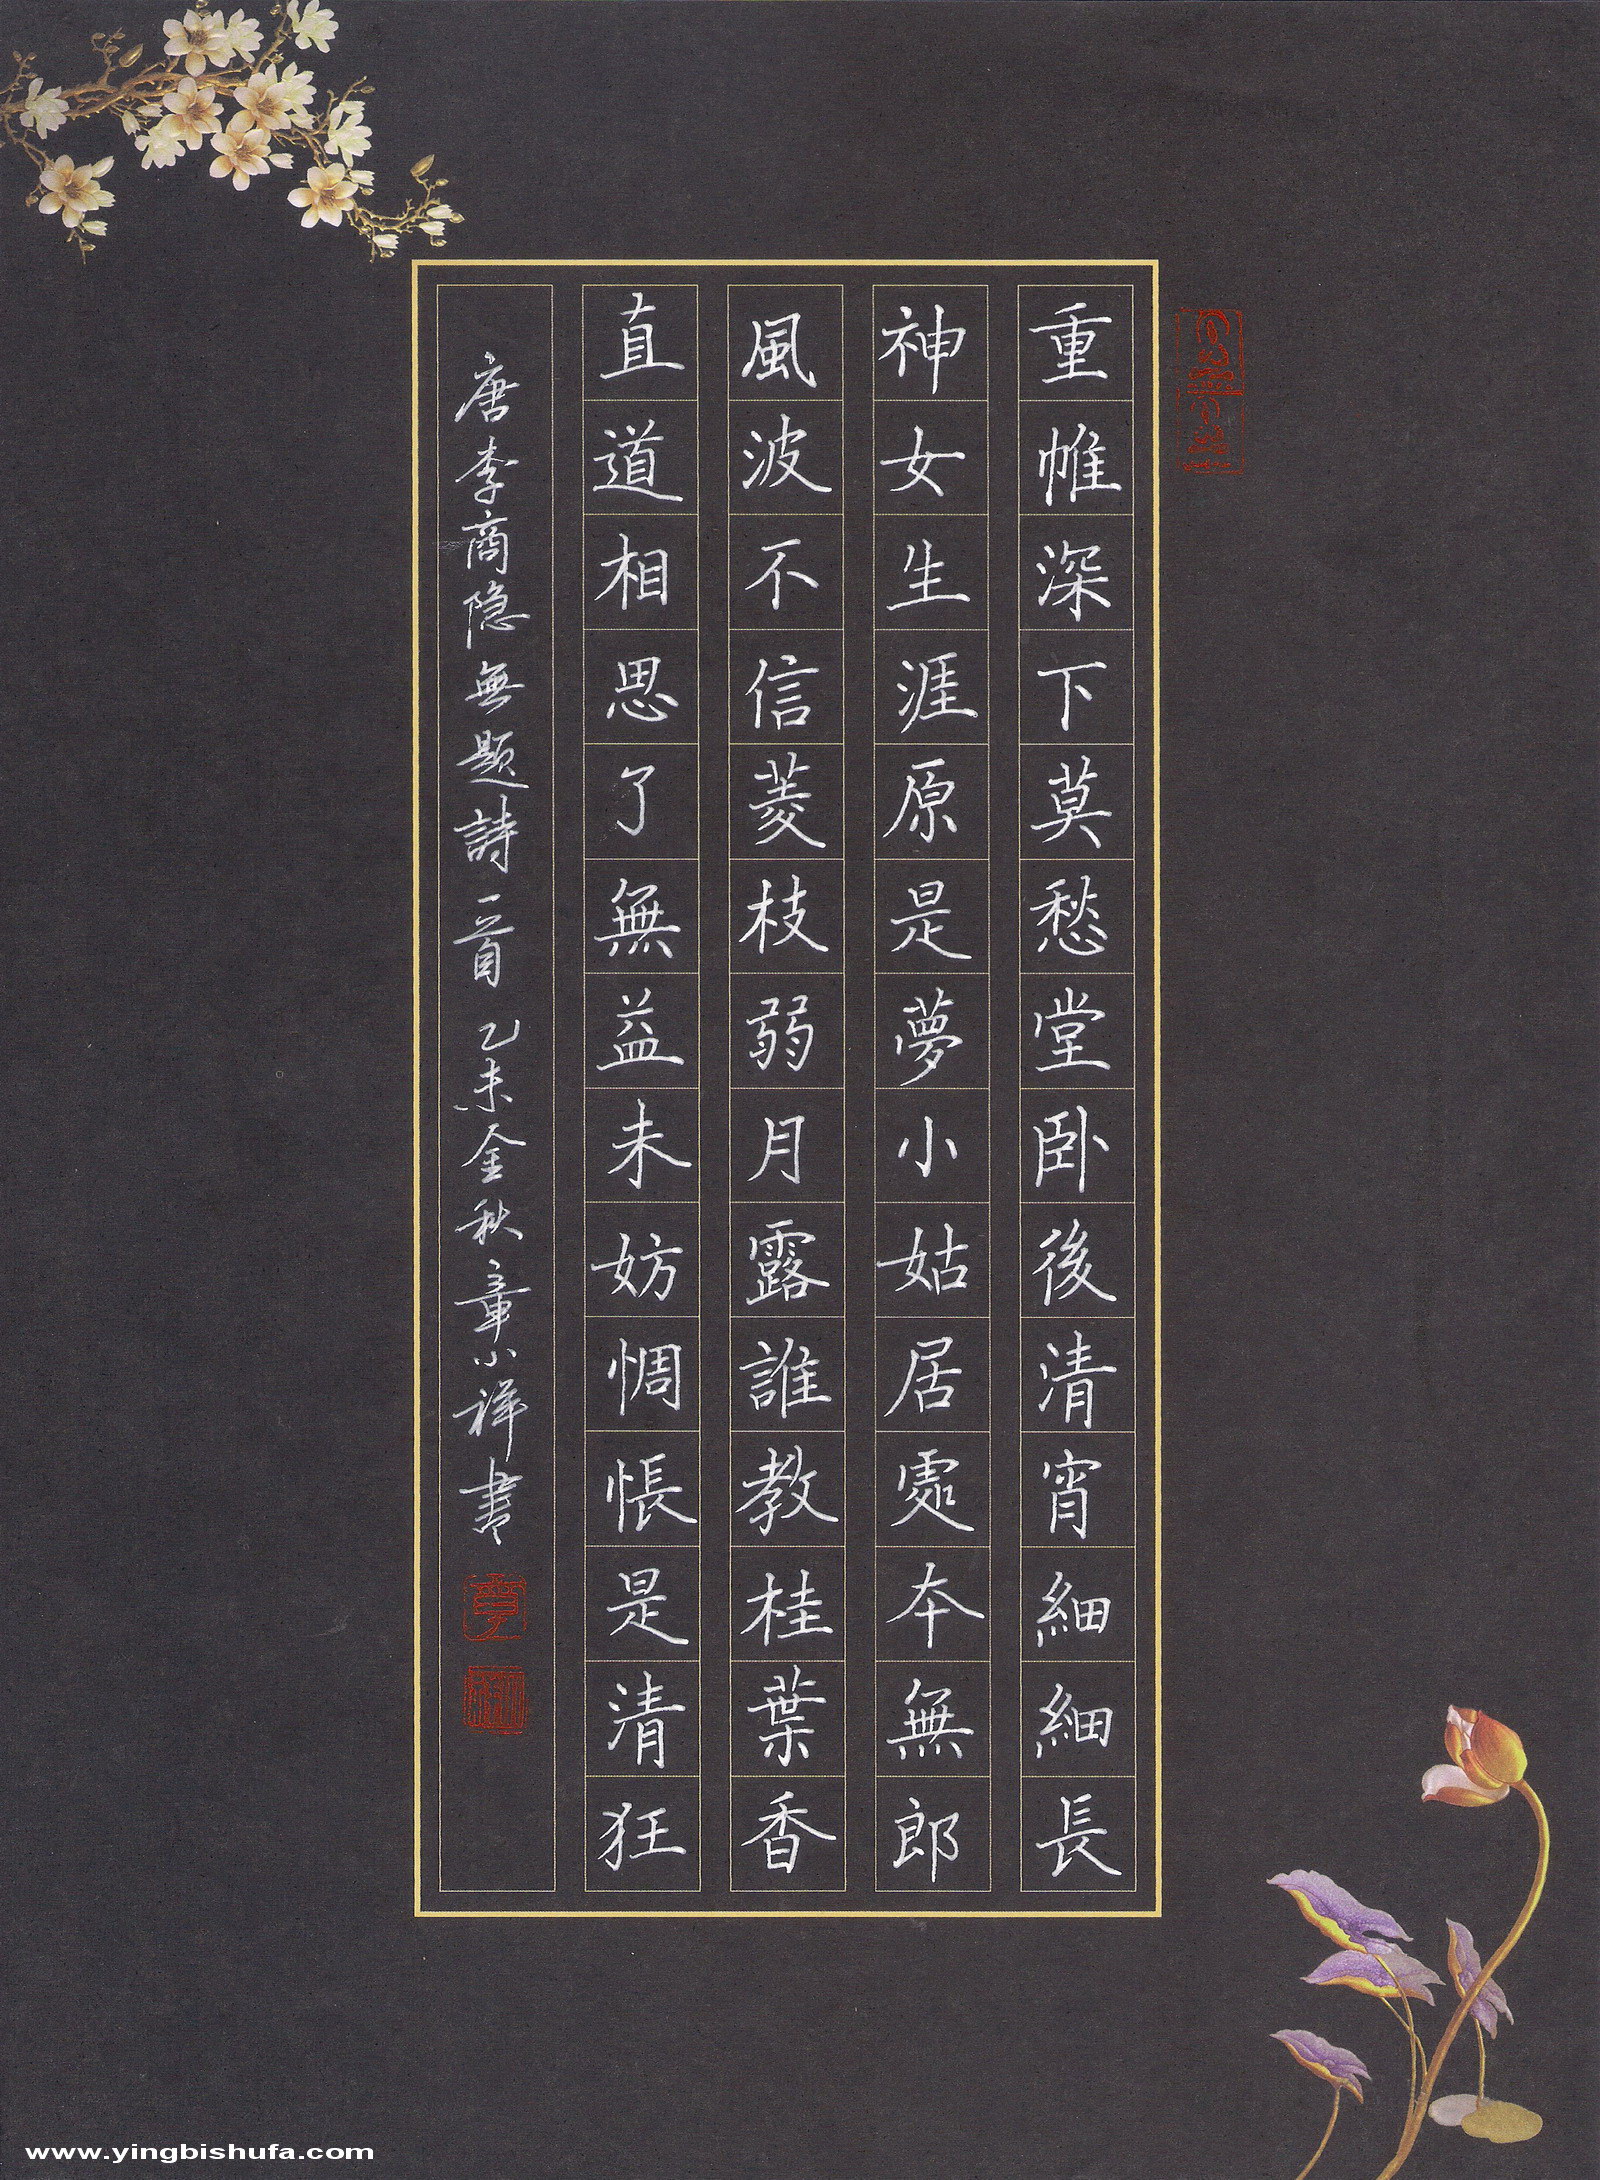 重帷深下莫愁堂卧後清宵細細長
神女生涯原是夢小姑居處本無郎
風波不信菱枝弱月露誰教桂葉香
直道相思了無益未妨惆悵是清狂
唐李商隐無題詩一首乙未金秋章小祥書
www.yingbishufa.com